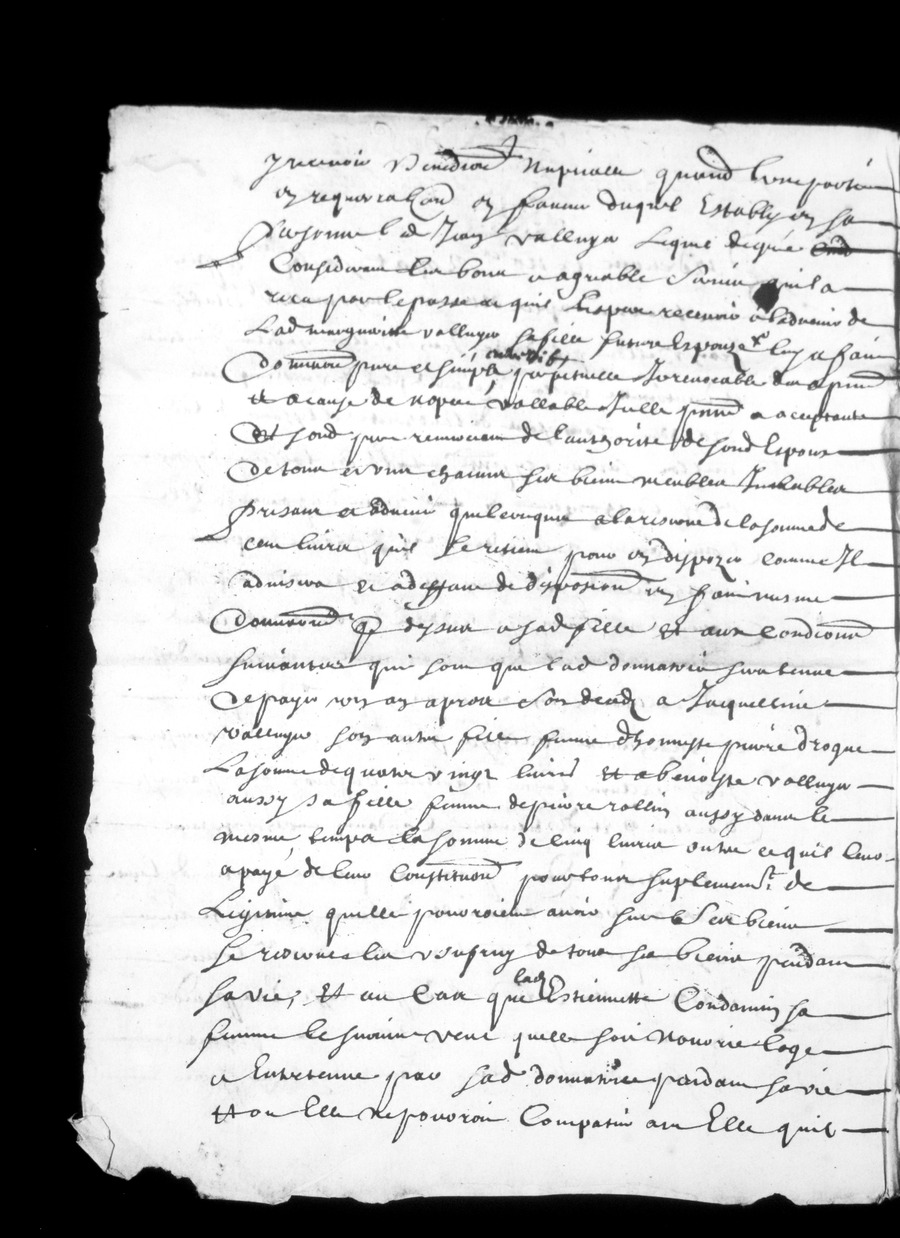 y recevoir benediction nuptialle quand lune partie
en requerra lau en faveur duquel Establye en sa
personne led Jean valluyer Lequel de gré
Considerant les bons et agreable services quil a
receu par le passe et quil Espere recevoir a ladvenir de
Lad marguerite valluyer sa fille future Espouze luy a fait
donnation pure et simple perpetuelle Irrevocable du a present
et a cause de nopce vallable Icelle presente et acceptante
et sond pur remerciant de lauthorite de sond Espoux
de tous et un chacuns ses biens meubles Immeubles
presant et advenir quelconques a la reserve de la somme de
cent livres quil se retient pour en dispozer comme Il
advisera et a deffaut de disposition en fait mesme
donnation que dessus a sad fille et aux Condicions
suivantes qui sont que lad donnatrice sera tenue
de payer un an apres son deced a Jacquelline
valluyer son autre fille femme dhonneste pierre drogue
La somme de quatre vingt livres et a benoiste valluyer
aussy sa fille femme de pierre rollin aussy dans le
mesme temps la somme de cinq livres outre ce quil leur
a payé de leur Constitution pour tous suplement de
Legitime quelle pourroient avoir sur les biens
se reserve les usufruy de tous ses biens pendant
sa vie, et au cas que lad Estiennette Condamin sa
femme le survive veut quelle soit nourrie loge
et Entretenue par sad donnatrice pendant sa vie
et ou Elle ne pouroit Compatir avec Elle quil